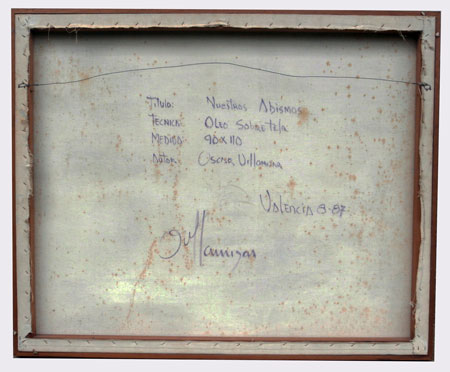 Titulo: Nuestros Abismos
Tecnica: Oleo Sobre tela
Medida: 90x110
Autor: Oscar Villamizar
Valencia 8-87